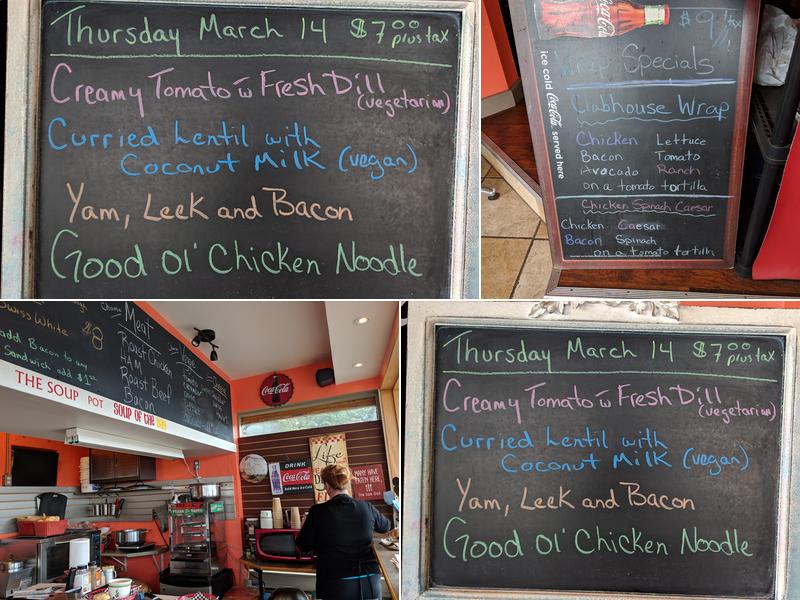 Thursday March 14 $7.00 plus tax
Creamy Tomato w Fresh Dill
(vegetarian)
Curried Lentil with
Coconut Milk (vegan)
Yam, Leek and Bacon
Good Ol' Chicken Noodle
Coca-Cola
$9
ice cold Coca-Cola served here
Specials
Clubhouse Wrap
Chicken Lettuce
Bacon Tomato
Avocado Ranch
on a tomato tortilla
Chicken Spinach Caesar
Chicken Caesar
Bacon Spinach
on a tomato tortilla
Swiss White
$8
add Bacon to any
Sandwich add $1
Meat
Roast Chicken
HAM
Roast Beef
Bacon
THE SOUP POT SOUP OF THE
Coca-Cola
DRINK
Coca-Cola
Life
MANY HAVE
EATEN HERE
Thursday March 14 $7.00 plus tax
Creamy Tomato w Fresh Dill
(vegetarian)
Curried Lentil with
Coconut Milk (vegan)
Yam, Leek and Bacon
Good Ol' Chicken Noodle